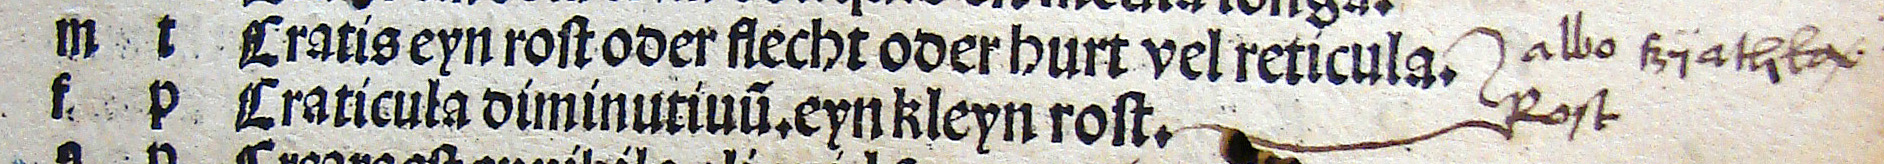 m t Cratis eyn rost oder flecht oder hurt vel reticula. albo
f. p Craticula diminutiuū. eyn kleyn rost. Rost